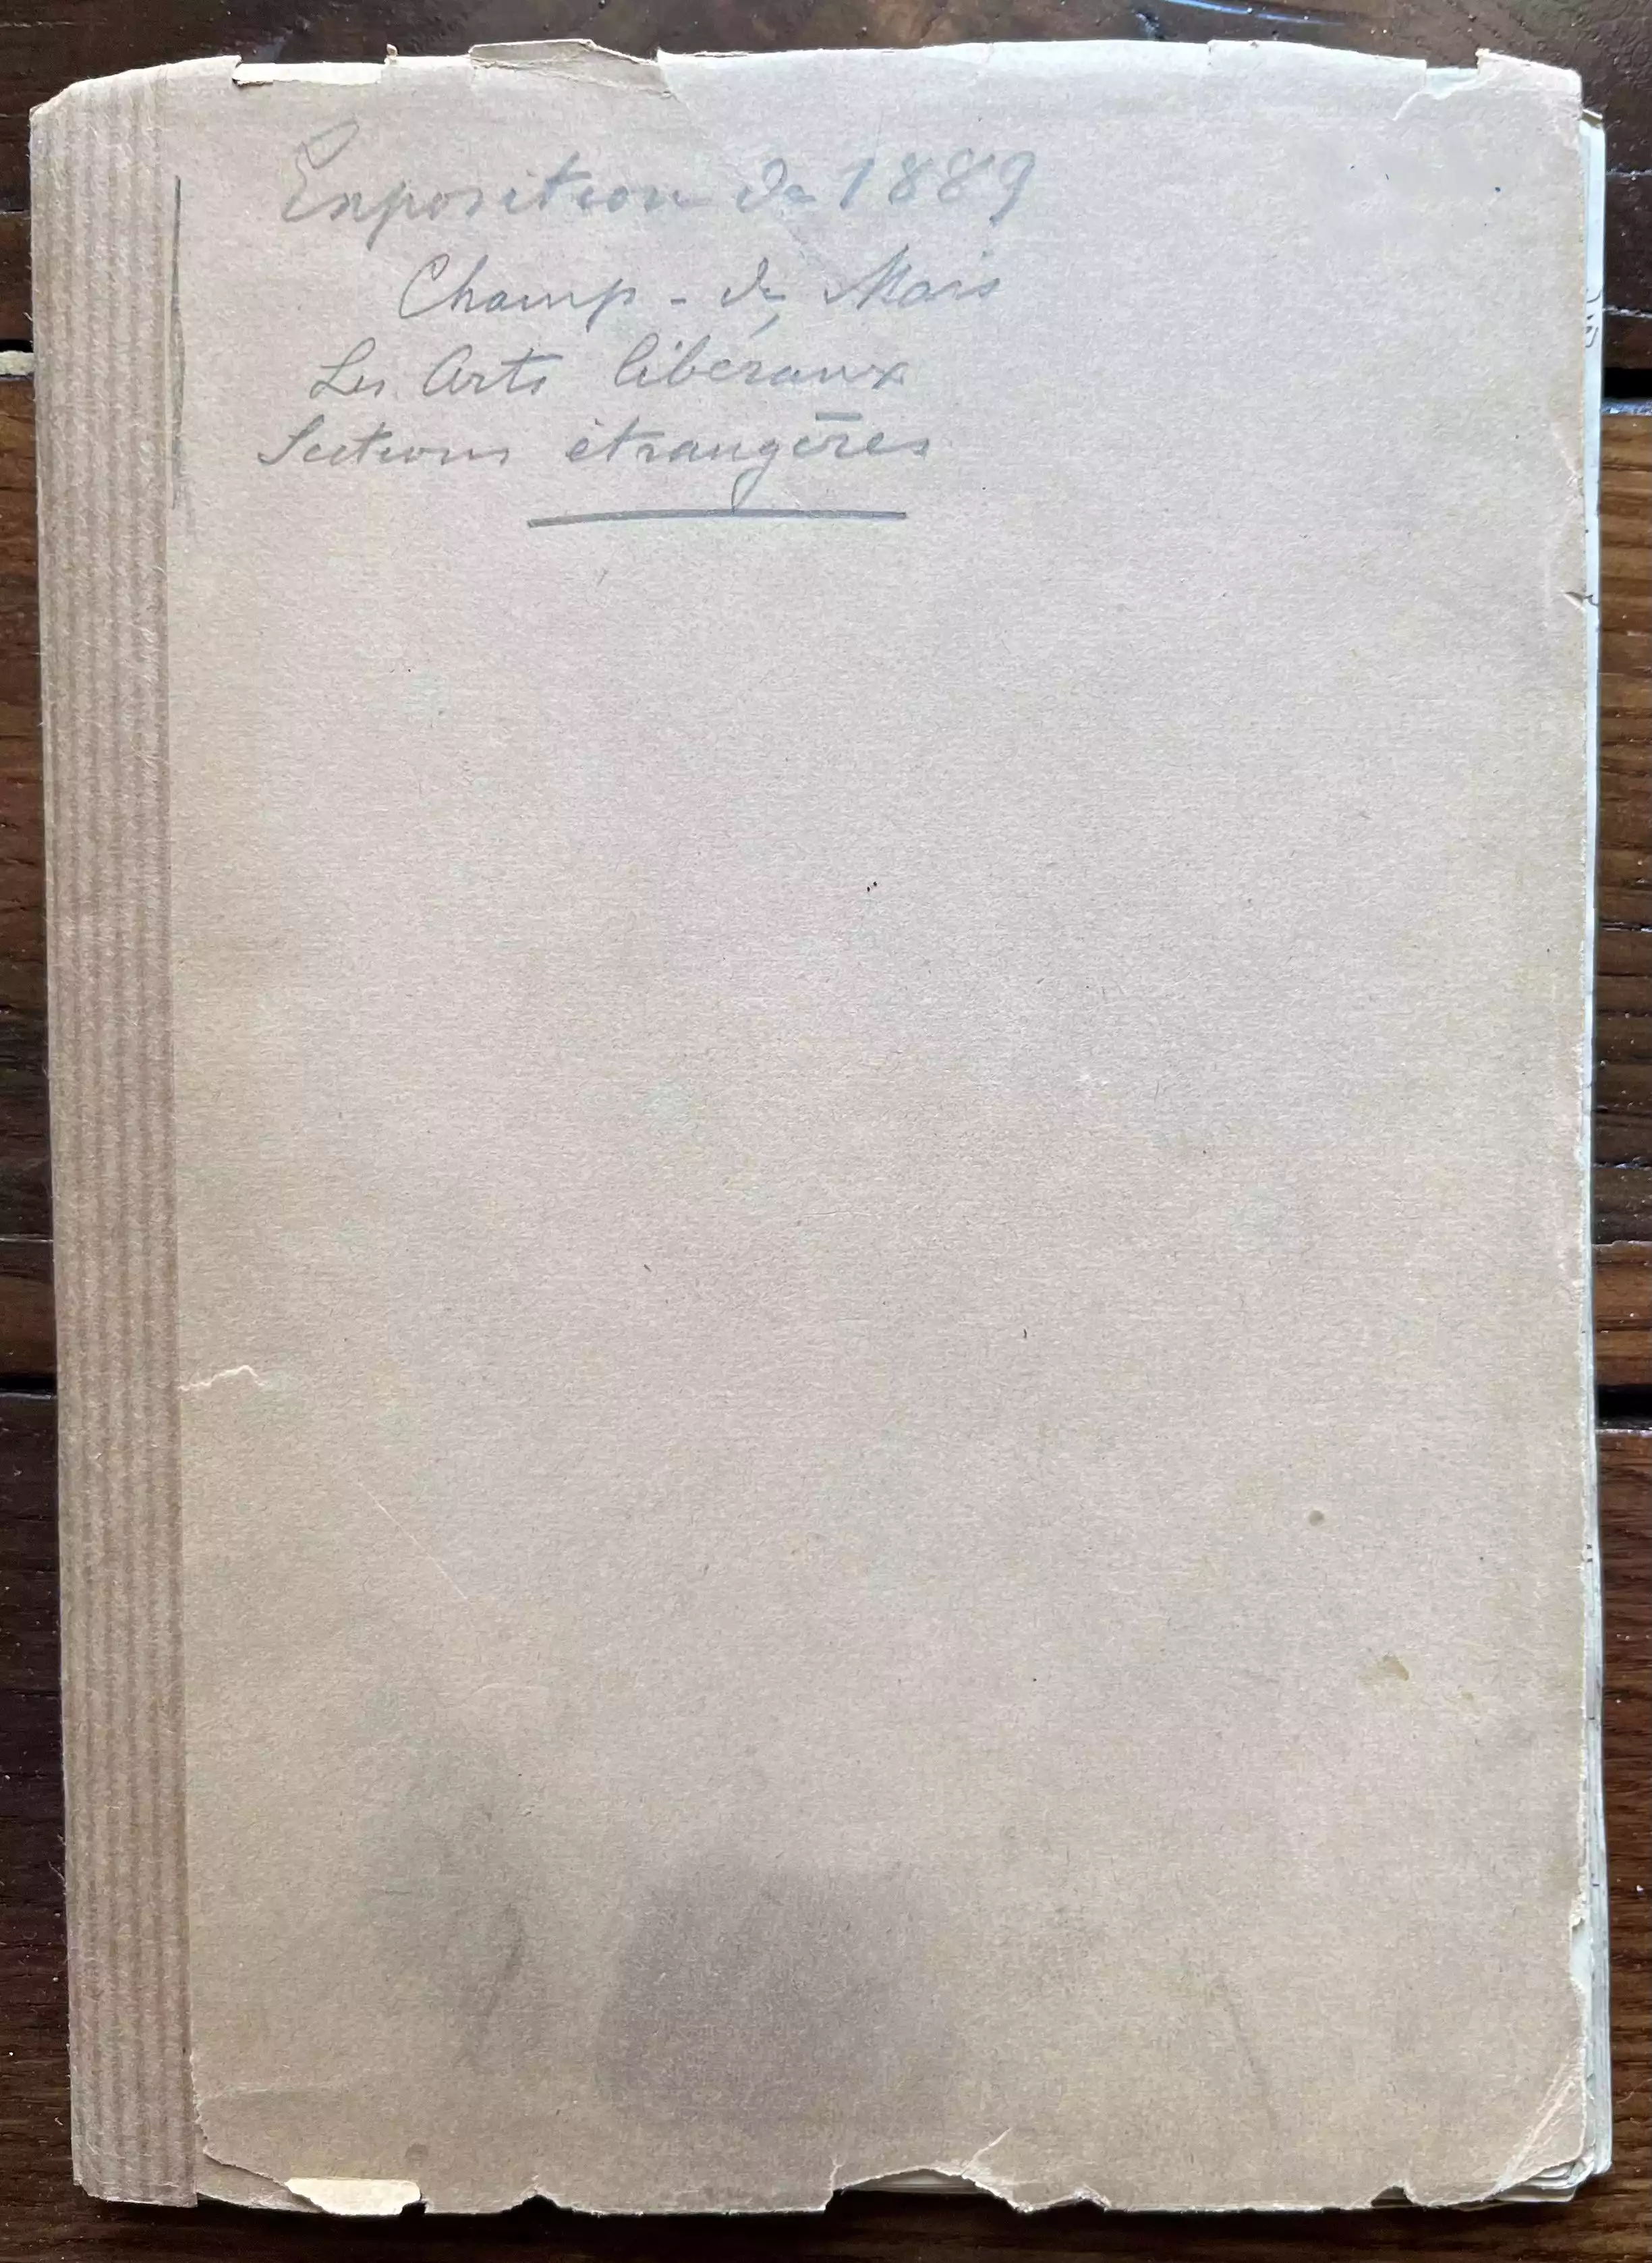 Exposition de 1889
Champ - de Mars
Les Arts libéraux
Sections étrangères